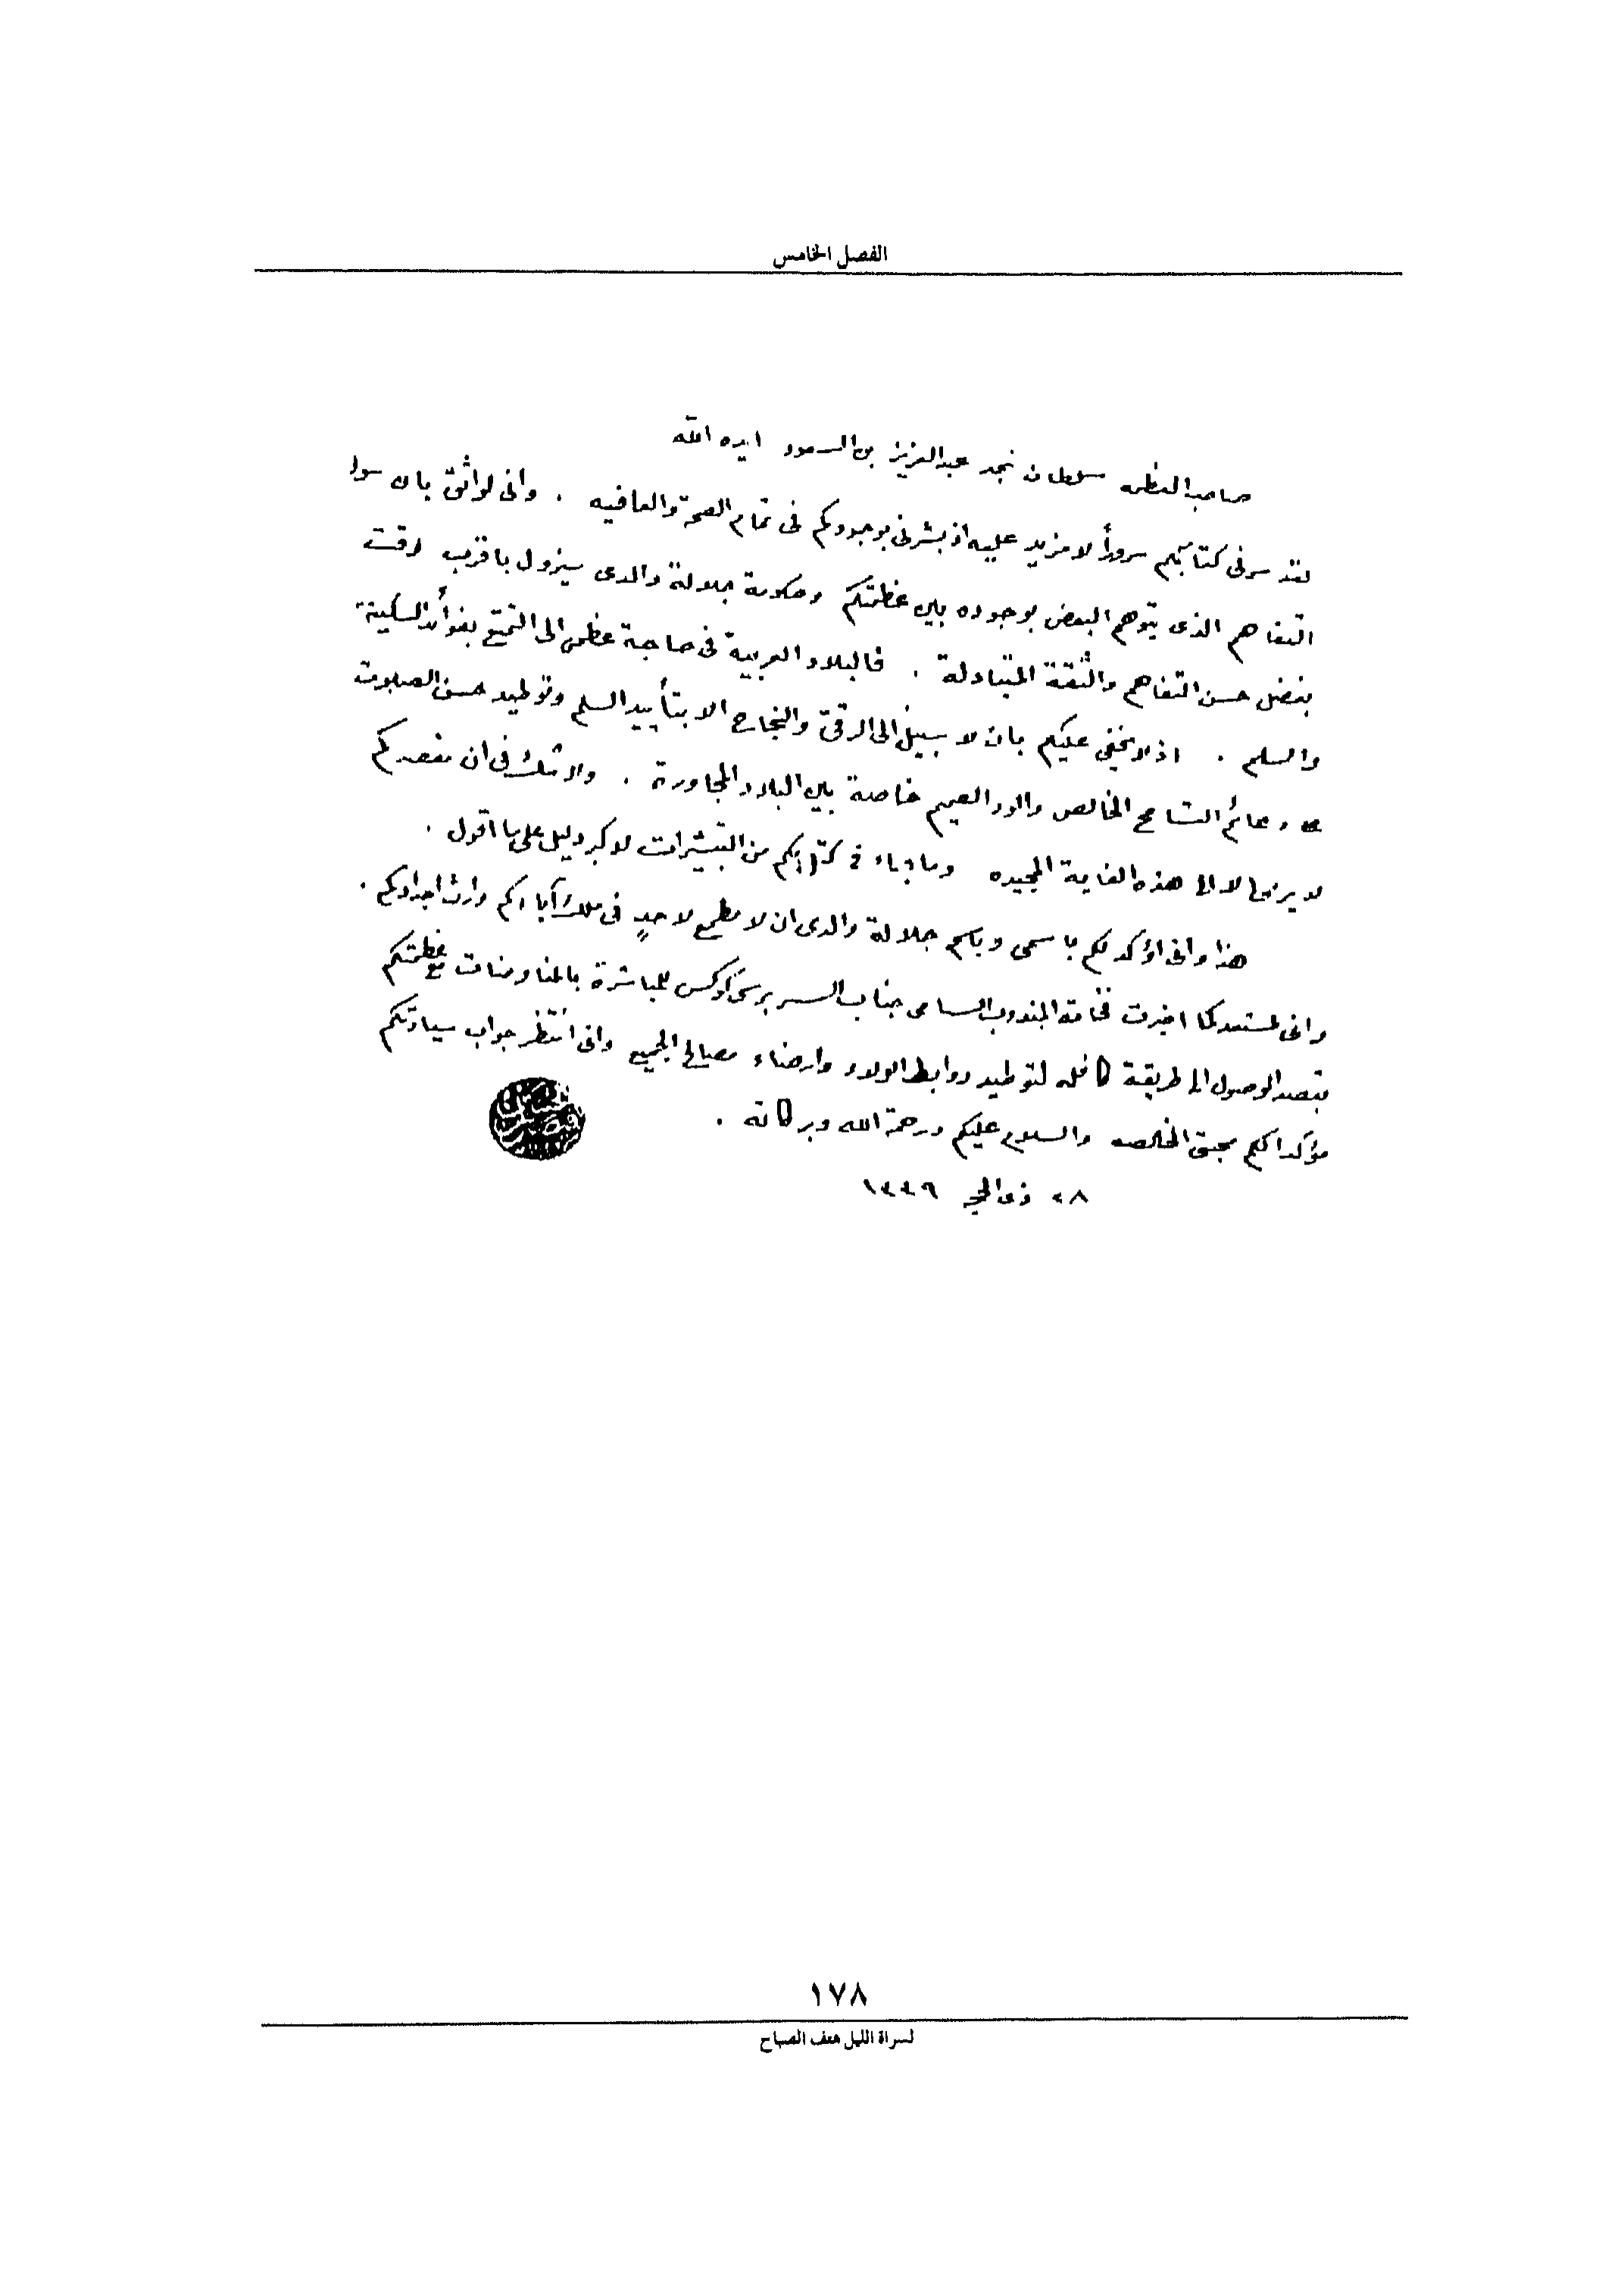 الفصل الخامس
صاحب العظمه سلطان نجد عبدالعزيز بن السعود ايده الله
لقد سرنى كتابكم سروراً لا مزيد عليه اذ بشرنى بوجودكم فى تمام الصحة والعافيه . وانى لواثق بان سوء
التفاهم الذى يتوهم البعض بوجوده بين عظمتكم وحكومة جلالة والدى سيزول باقرب وقت
بفضل حسن التفاهم والثقة المتبادلة . فالبلاد العربية فى حاجة عظمى الى التمتع بفوائد السكينة
والسلم . اذ لا يخفى عليكم بان لا سبيل الى الرقى والنجاح الا بتأييد السلم وتوطيد حسن الصلات
دعائم التسامح الخالص والود العميم خاصة بين البلاد المجاورة . ولا شك فى ان مقصدكم
لا يرمى الا الى هذه الغاية المجيده وما جاء فى كتابكم من التبشيرات لاكبر دليل على ما اقول .
هذا وانى اؤكد لكم باسمى وباسم جلالة والدى ان لا مطمع لاحدٍ فى ملك آباءكم وارث اجدادكم .
وانى لمستعد كما اخبرت فخامة المندوب السامى جناب السر برسى كوكس للمباشرة بالمفاوضات مع عظمتكم
بقصد الوصول الى طريقة كافله لتوطيد روابط الولاء وارضاء مصالح الجميع وانى انتظر جواب سيادتكم
مؤكدا لكم محبتى الخالصه والسلام عليكم ورحمة الله وبركاته .
٢٨ ذى الحجه ١٣٣٩
١٧٨
لسراة الليل هتف الصباح